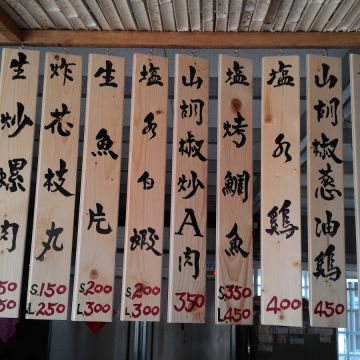 生炒螺肉
50
50
炸花枝丸
S.150
L.250
生魚片
S200
L300
塩水白蝦
S.200
L.300
山胡椒炒A肉
350
塩烤鯛魚
S.350
L450
塩水鷄
400
山胡椒葱油鷄
450